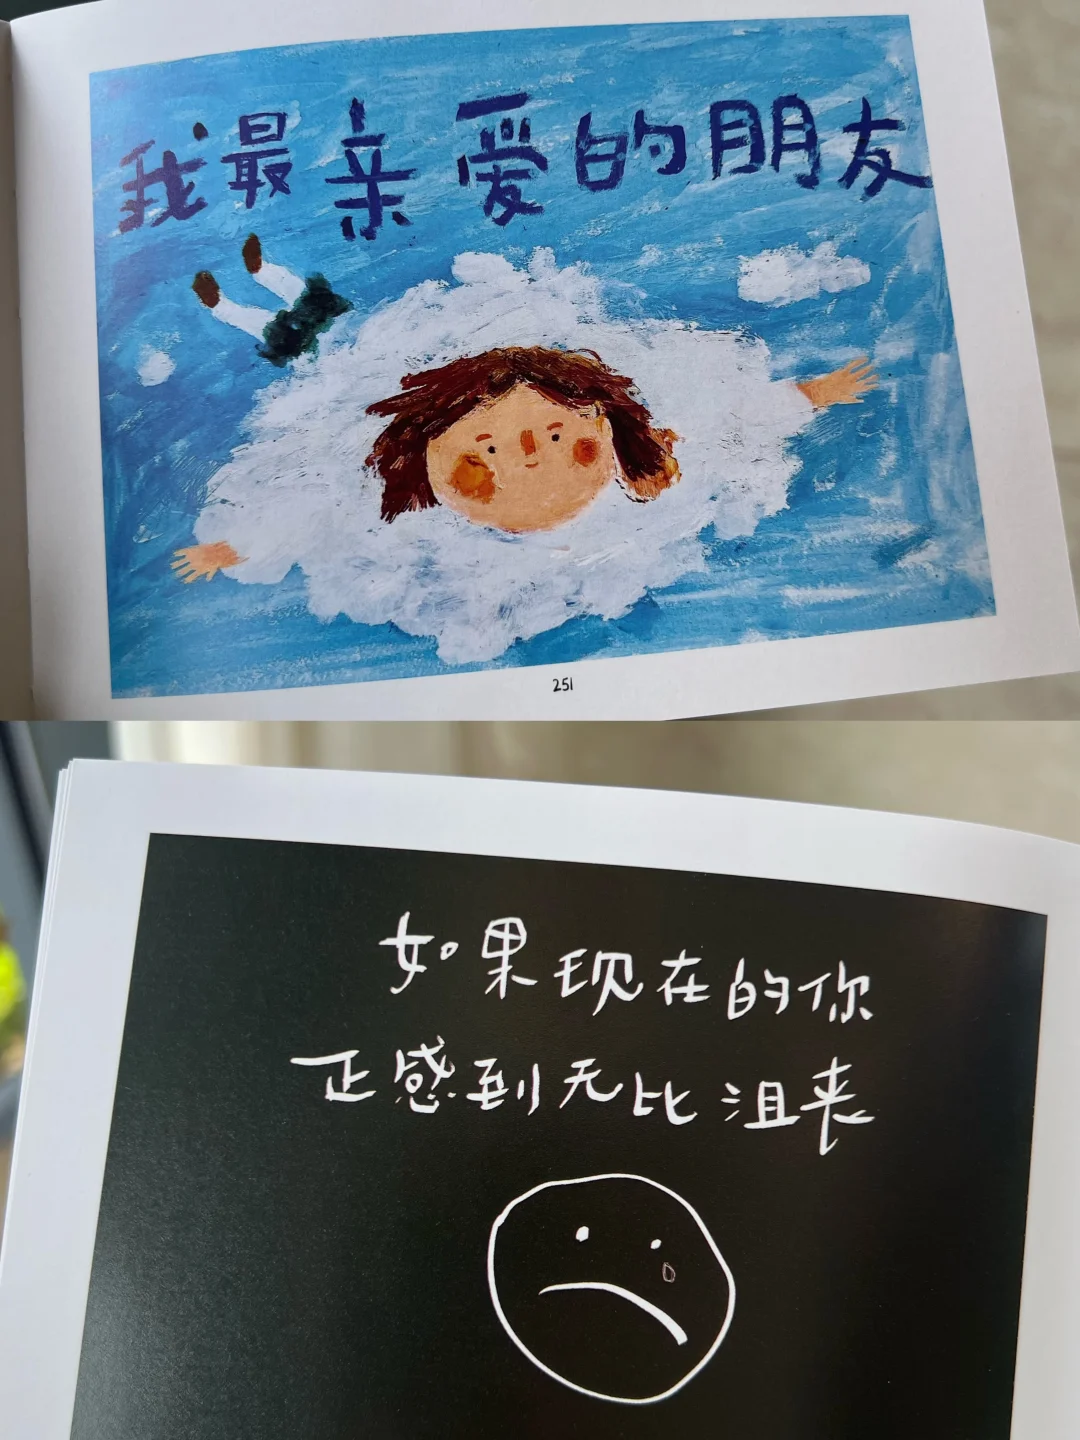 我最亲爱的朋友
251
如果现在的你
正感到无比沮丧